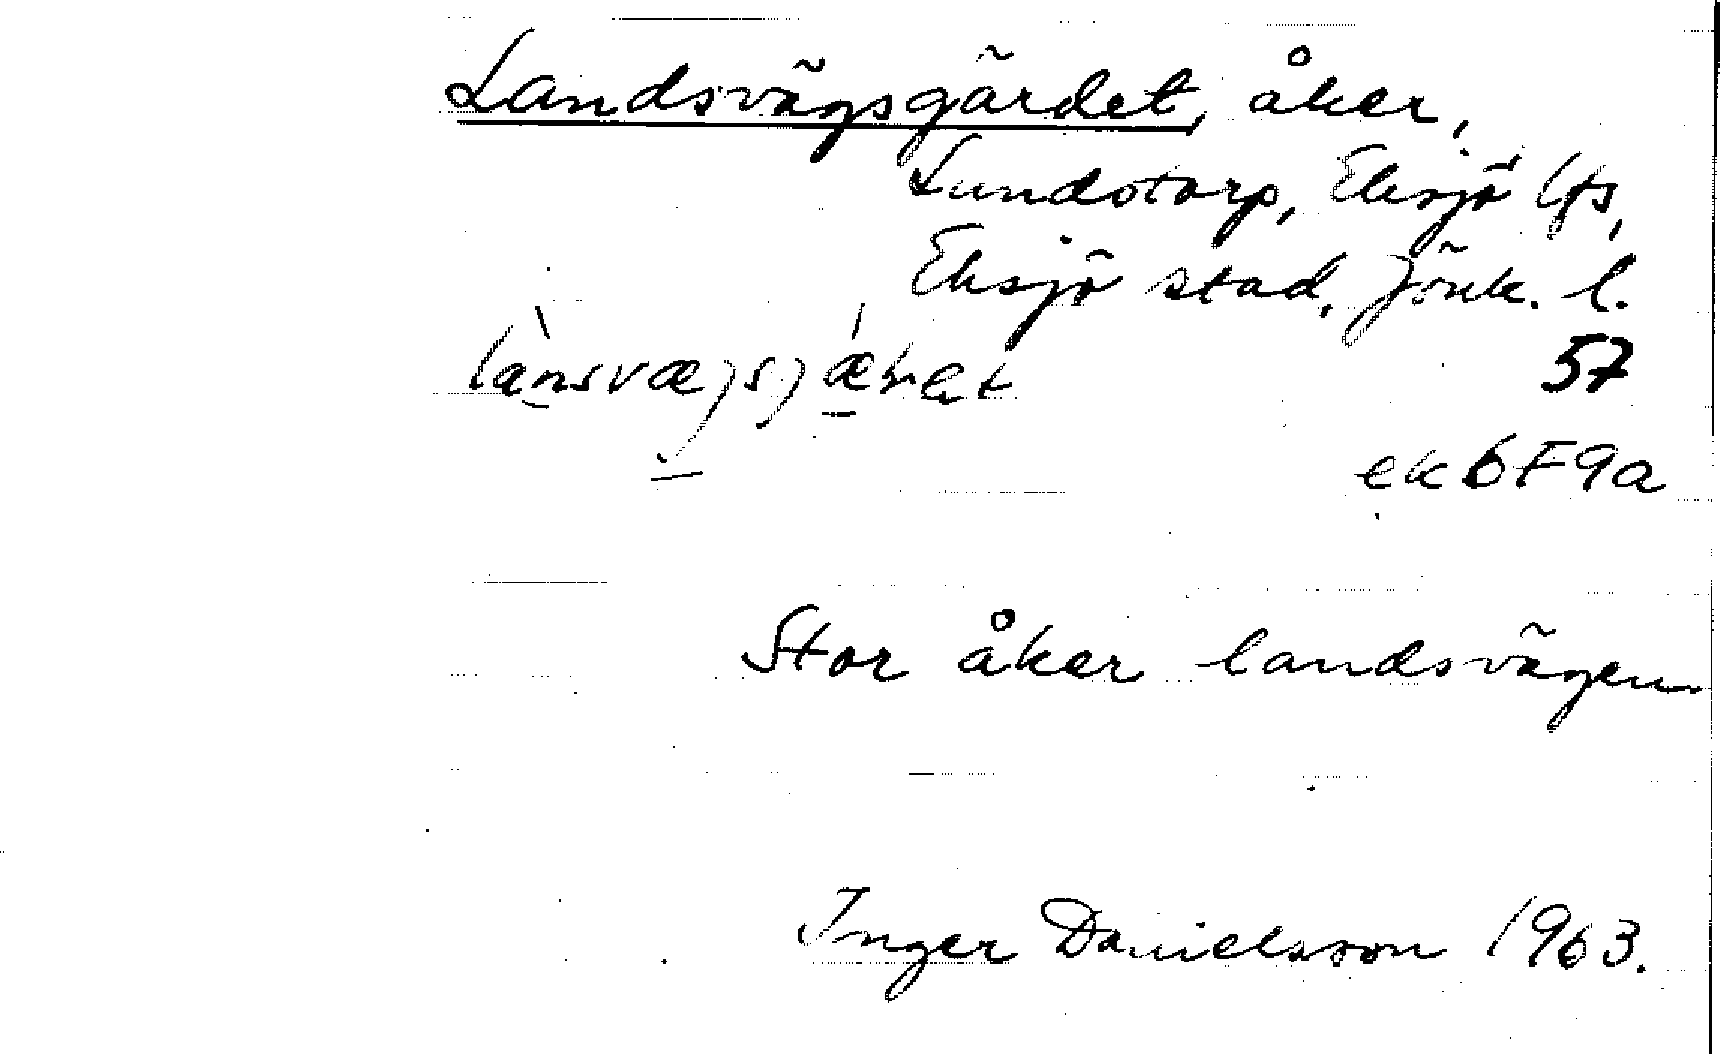 Landsvägsgärdet, åker,
Lundstorp, Eksjö lfs,
Eksjö stad, Jönk. l.
57
ek 6F9a
Stor åker landsvägen.
Inger Danielsson 1963.